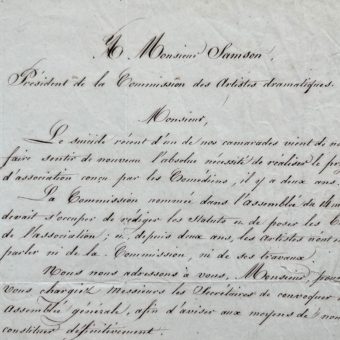 A Monsieur Samson,
Président de la Commission des Artistes dramatiques.
Monsieur,
Le suicide récent d'un de nos camarades vient de no
faire sentir de nouveau l'absolue nécessité de réaliser le pro
d'association conçu par les Comédiens, il y a deux ans.
La Commission nommée dans l'assemblée du
devait s'occuper de rédiger les Statuts et de poser les
de l'association; et, depuis deux ans, les Artistes n'ont
parler ni de la Commission, ni de ses travaux.
Nous nous adressons à vous, Monsieur, pou
Vous chargiez Messieurs les Secrétaires de convoquer
Assemblée générale, afin d'aviser aux moyens de nou
constituer définitivement.